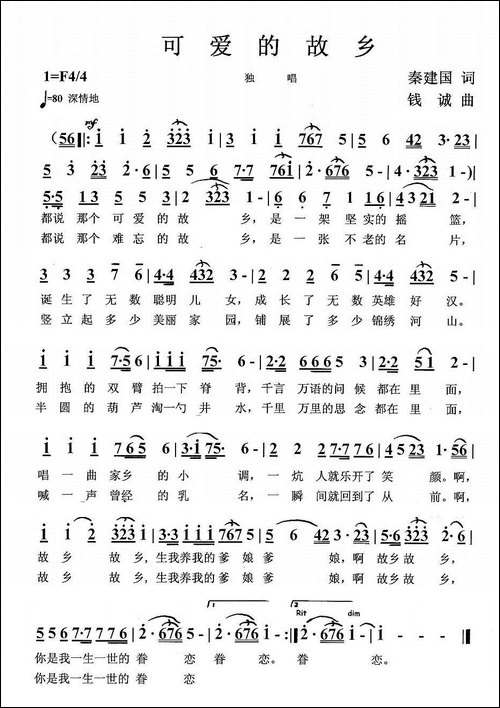 可爱的故乡
1=F4/4 独 唱 秦建国 词
♩=80 深情地 钱 诚 曲
mf
(56‖: i i 2 323 | i · 3 i i | 767 5 - | 5 6 42 | 3·23 |
5 3 23 2·6 | 5 5 6 7·7 | 76i 5 - | 4·3 23 | 1 - - )|
5·5 13 5 5 | 4·2 323 2 - | 6 6 7 1 16 | 4 3 21 2 - |
都说 那个 可 爱 的 故 乡, 是 一 架 坚 实的 摇 篮,
都说 那个 难 忘 的 故 乡, 是 一 张 不 老的 名 片,
3 3 3 7 6 | 4·4 432 - | 3 2 2 7 6 | 5·5 432 2 - |
诞 生 了 无 数 聪明 儿 女, 成 长 了 无 数 英雄 好 汉。
竖 立 起 多 少 美丽 家 园, 铺 展 了 多 少 锦绣 河 山。
i i i 7·5 6 | 2·2 3 75· 6 - | 2·2 666 5 5 | 6·5 42 3 - |
拥 抱 的 双 臂 拍一 下 脊 背, 千言 万语的 问 候 都在 里 面,
半 圆 的 葫 芦 淘一 勺 井 水, 千里 万里的 思 念 都在 里 面,
i i i 765 6 | 3·i 75· 6 - | 2 2 27·7 7 6 | 5 423 1 · 56 |
唱 一 曲 家乡 的 小 调, 一 炕 人就乐开了 笑 颜。啊,
喊 一 声 曾经 的 乳 名, 一 瞬 间就回到了 从 前。啊,
i i 2 323 i | 3·3 i i i 5 6 5 | 5 - - 6 4 | 3·23 5·6 323 |
故 乡 故 乡, 生我养我的 爹 娘 爹 娘, 啊 故乡 故 乡,
故 乡 故 乡, 生我养我的 爹 娘 爹 娘, 啊 故乡 故 乡,
1. 2. Rit dim
5 5 6 7·7 7 7 6 | 2·676 - | 2·676 i - :‖ 2·676 i | i - - - ‖
你是 我 一生 一世的 眷 恋 眷 恋。 眷 恋。
你是 我 一生 一世的 眷 恋